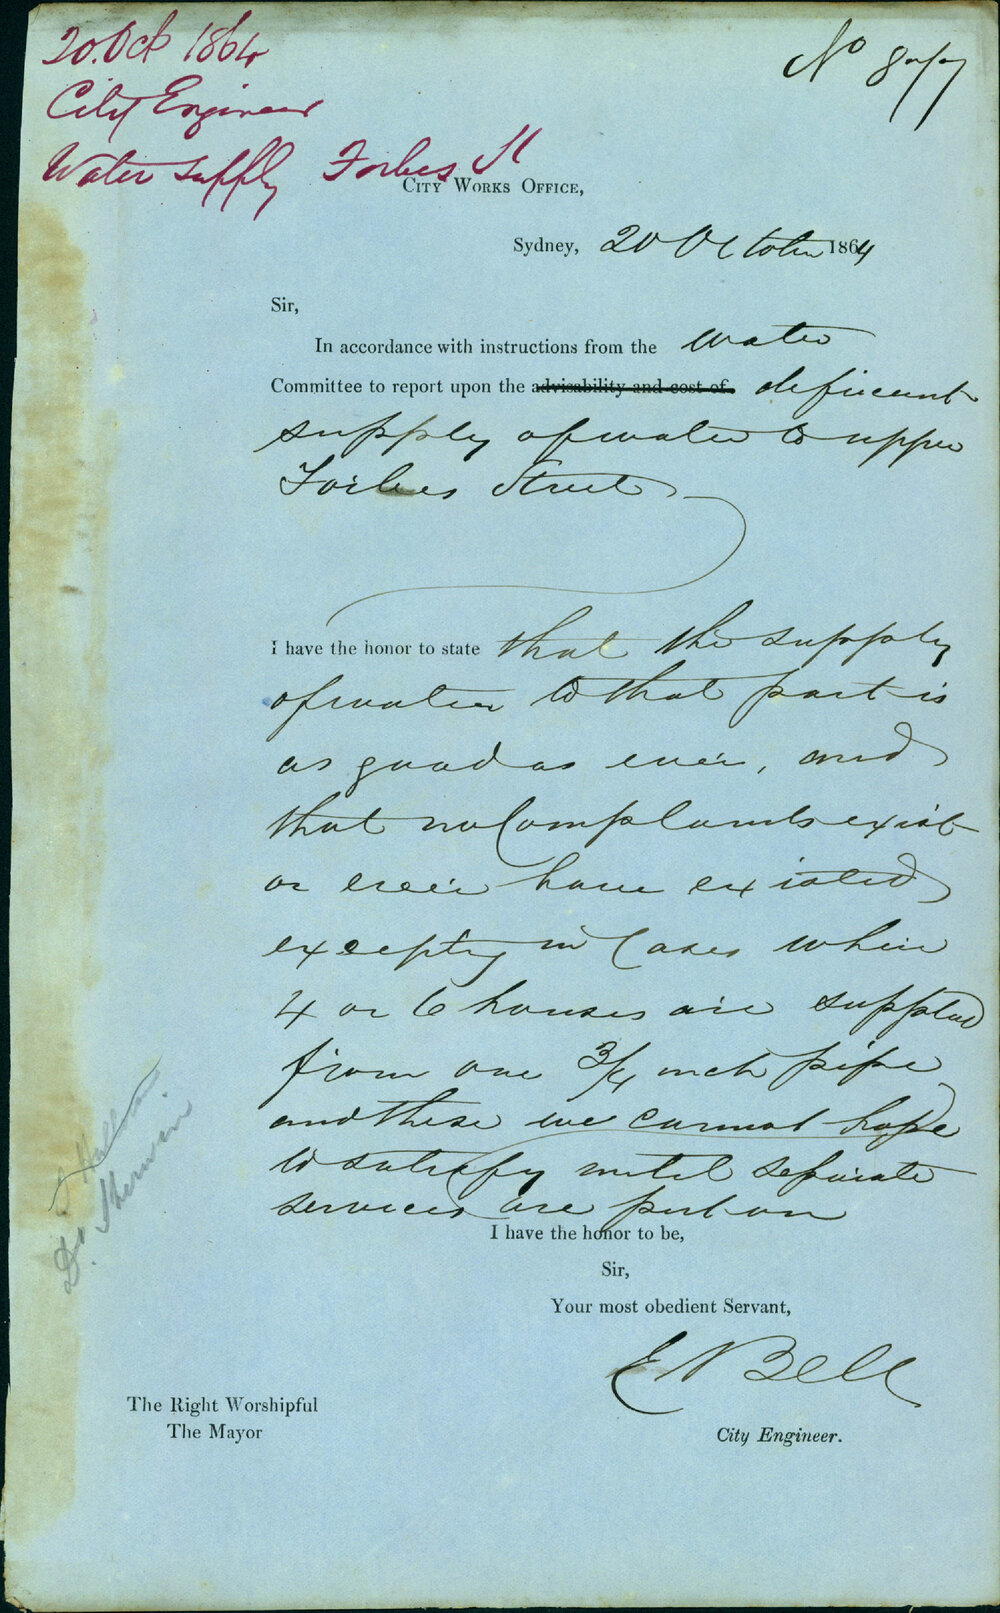 20. Oct 1864
City Engineer
Water supply Forbes St
No 877
CITY WORKS OFFICE,
Sydney, 20 October 1864
Sir,
In accordance with instructions from the Water
Committee to report upon the advisability and cost of deficient
supply of water to upper
Forbes Street
I have the honor to state that the supply
of water to that part is
as good as ever, and
that no Complaints exist
or ever have existed
excepting in Cases where
4 or 6 houses are supplied
from one 3/4 inch pipe
and these we cannot hope
to satisfy until separate
services are put on
I have the honor to be,
Sir,
Your most obedient Servant,
E Bell
City Engineer.
The Right Worshipful
The Mayor